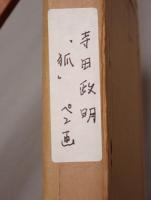 寺田政明
「狐」
ペン画